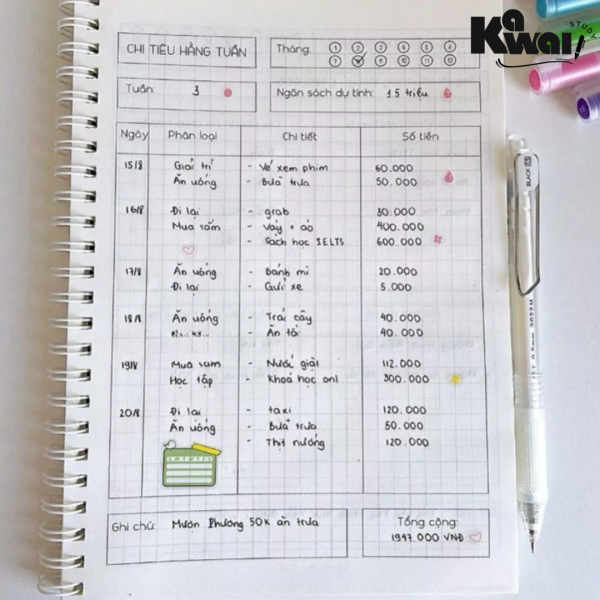 Kawai
STUDY
CHI TIÊU HÀNG TUẦN
Tháng: 1 2 3 4 5 6
7 8 9 10 11 12
Tuần: 3
Ngân sách dự tính: 1.5 triệu
Ngày Phân loại Chi tiết Số tiền
15/8 Giải trí - Vé xem phim 60.000
Ăn uống - Bữa trưa 50.000
16/8 Đi lại - grab 30.000
Mua sắm - Váy + áo 400.000
- Sách học IELTS 600.000
17/8 Ăn uống - Bánh mì 20.000
Đi lại - Gửi xe 5.000
18/8 Ăn uống - Trái cây 40.000
- Ăn tối 40.000
19/8 Mua sắm - Nước giặt 112.000
Học tập - Khoá học onl 300.000
20/8 Đi lại - taxi 120.000
Ăn uống - Bữa trưa 50.000
- Thịt nướng 120.000
Ghi chú: Mượn Phương 50k ăn trưa
Tổng cộng:
1947.000 VNĐ
BLACK 0.5